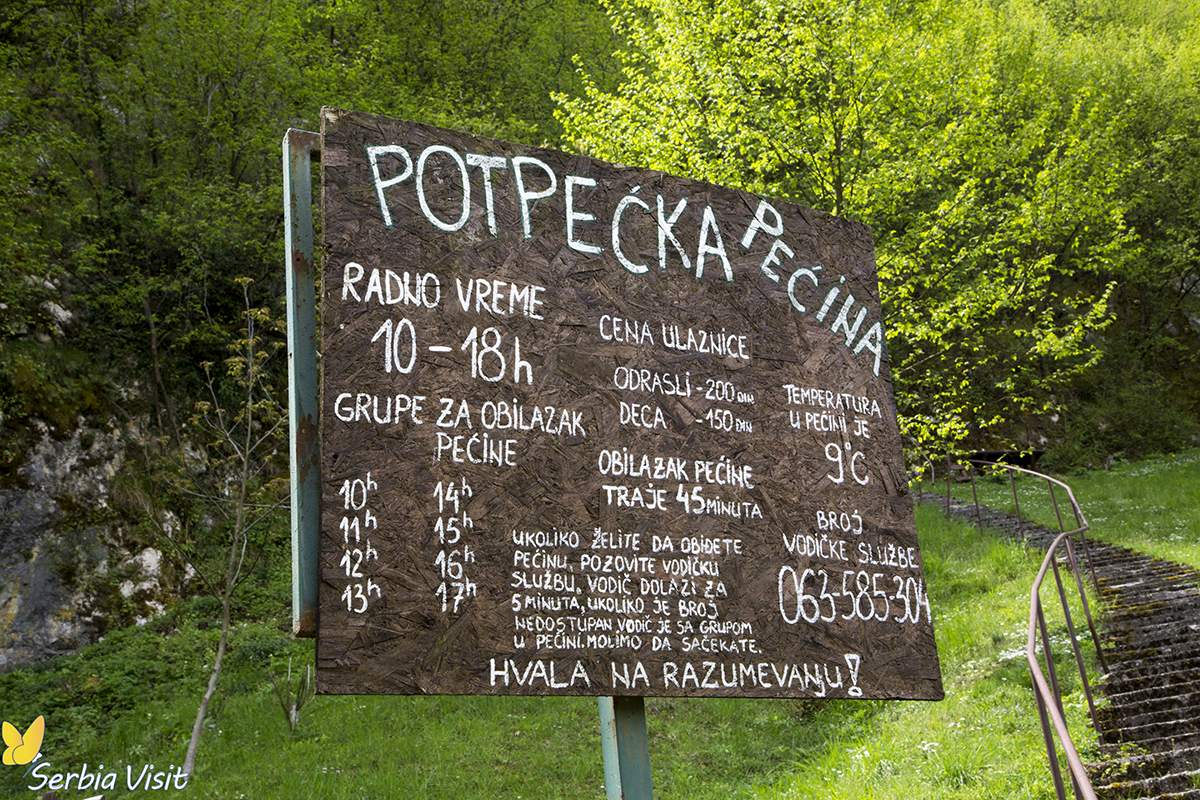 POTPEĆKA PEĆINA
RADNO VREME
10-18h
GRUPE ZA OBILAZAK
PEĆINE
10h 14h
11h 15h
12h 16h
13h 17h
CENA ULAZNICE
ODRASLI-200 DIN
DECA -150 DIN
OBILAZAK PEĆINE
TRAJE 45 MINUTA
UKOLIKO ŽELITE DA OBIĐETE
PEĆINU, POZOVITE VODIČKU
SLUŽBU. VODIČ DOLAZI ZA
5 MINUTA, UKOLIKO JE BROJ
NEDOSTUPAN VODIČ JE SA GRUPOM
U PEĆINI. MOLIMO DA SAČEKATE.
TEMPERATURA
U PEĆINI JE
9°C
BROJ
VODIČKE SLUŽBE
063-585-304
HVALA NA RAZUMEVANJU!
Serbia Visit